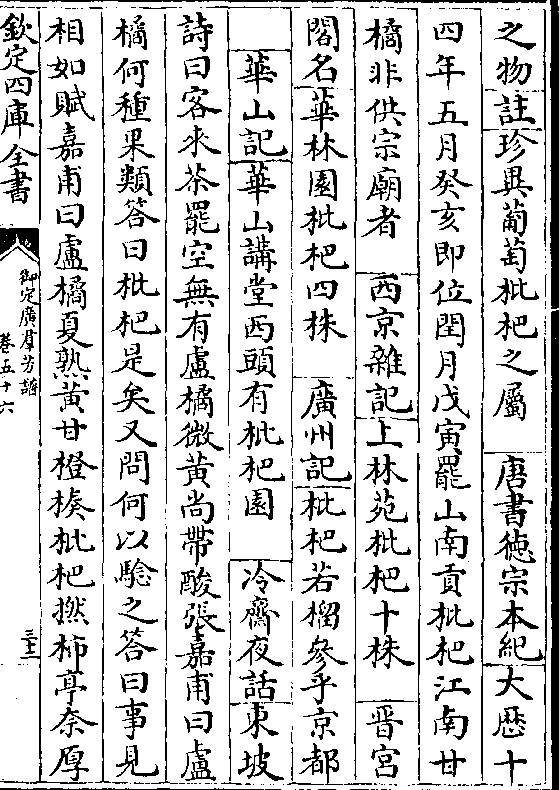 之物註珍異葡萄枇杷之屬 唐書德宗本紀大歴十
四年五月癸亥即位閏月戊寅罷山南貢枇杷江南甘
橘非供宗廟者 西京雜記上林苑枇杷十株 晉宮
閣名華林園枇杷四株 廣州記枇杷若榴參乎京都
華山記華山講堂西頭有枇杷園 冷齋夜話東坡
詩曰客來茶罷空無有盧橘微黃尚帶酸張嘉甫曰盧
橘何種果類答曰枇杷是矣又問何以驗之答曰事見
相如賦嘉甫曰盧橘夏熟黃甘橙楱枇杷橪柿亭奈厚
欽定四庫全書
御定廣羣芳譜
卷五十六
三十二